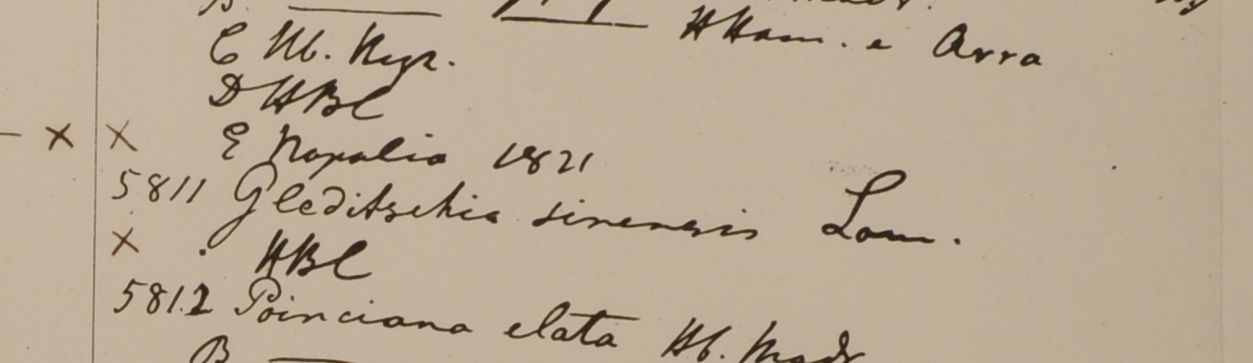 B.
HHam. e Arra
C Hb. Heyn.
D HBC
x x E Napalia 1821
5811 Gleditschia sinensis Lam.
x . HBC
5812 Poinciana elata Hb. Madr
B